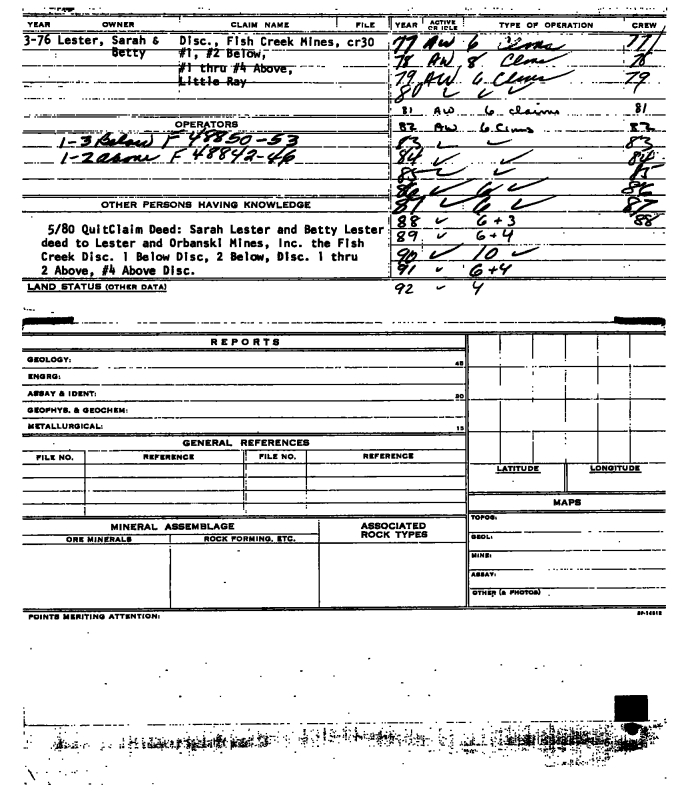 YEAR OWNER CLAIM NAME FILE YEAR ACTIVE OR IDLE TYPE OF OPERATION CREW
3-76 Lester, Sarah & Disc., Fish Creek Mines, cr30 77 AW 6 Clms 77
Betty #1, #2 Below, 78 AW 8 Clms 78
#1 thru #4 Above, 79 AW 6 Clms 79
Little Ray 80 ✓ ✓ ✓
81 AW 6 claims 81
OPERATORS 82 AW 6 Clms 82
1-3 Below F 48850-53 83 ✓ ✓ 83
1-2 above F 48842-46 84 ✓ ✓ 84
85 ✓ ✓ 85
86 ✓ 6 ✓ 86
OTHER PERSONS HAVING KNOWLEDGE 87 ✓ 6 ✓ 87
88 ✓ 6+3 88
5/80 QuitClaim Deed: Sarah Lester and Betty Lester 89 ✓ 6+4
deed to Lester and Orbanski Mines, Inc. the Fish
Creek Disc. 1 Below Disc, 2 Below, Disc. 1 thru 90 ✓ 10 ✓
2 Above, #4 Above Disc. 91 ✓ 6+4
LAND STATUS (OTHER DATA) 92 ✓ 4
REPORTS
GEOLOGY: 45
ENGRG:
ASSAY & IDENT: 30
GEOPHYS. & GEOCHEM:
METALLURGICAL: 15
GENERAL REFERENCES
FILE NO. REFERENCE FILE NO. REFERENCE
LATITUDE LONGITUDE
MAPS
MINERAL ASSEMBLAGE ASSOCIATED ROCK TYPES
ORE MINERALS ROCK FORMING, ETC.
TOPOG:
GEOL:
MINE:
ASSAY:
OTHER (& PHOTOS)
POINTS MERITING ATTENTION: